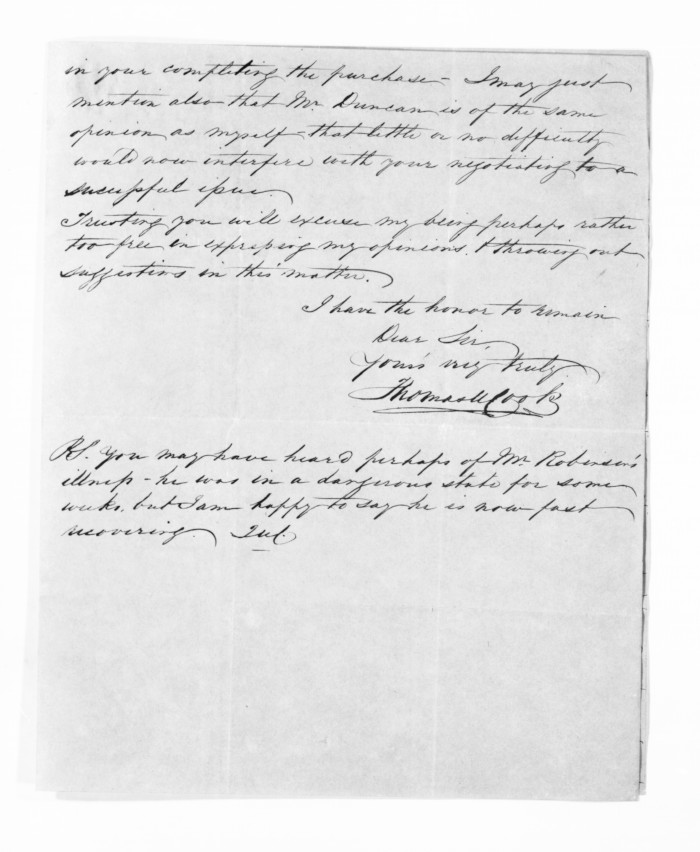 in your completing the purchase - I may just
mention also that Mr. Duncan is of the same
opinion as myself - that little or no difficulty
would now interfere with your negotiating to a
successful issue.
Trusting you will excuse my being perhaps rather
too free in expressing my opinions, & throwing out
suggestions in this matter.
I have the honor to remain
Dear Sir,
Yours very truly
Thomas W Cook
PS. You may have heard perhaps of Mr. Robinson's
illness - he was in a dangerous state for some
weeks, but I am happy to say he is now fast
recovering.